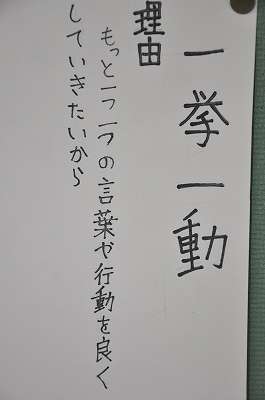 一挙一動
理由
もっと一つ一つの言葉や行動を良く
していきたいから